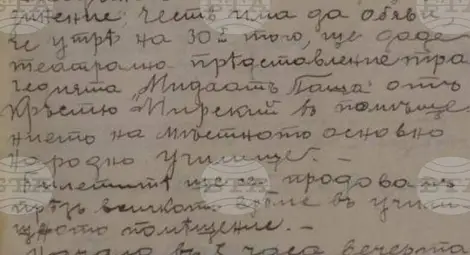 жение, честь има да обяви
че утрѣ на 30й того, ще даде
театрално прѣдставление тра
гедията „Мидаатъ Паша" отъ
Кръстю Мирский въ помѣще
нието на мѣстното основно
народно училище. –
Билетитѣ ще се продаватъ
прѣзъ всичкото врѣме въ учили
щното помѣщение. –
Начало въ часа вечерта